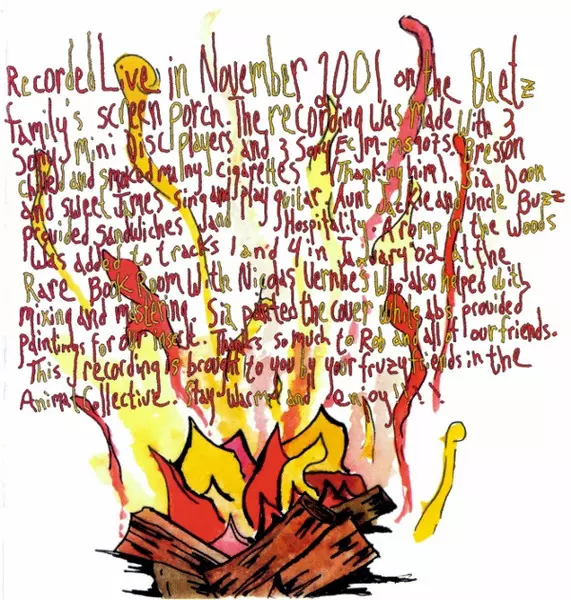 Recorded Live in November 2001 on the Baetz
family's screen porch. The recording was made With 3
Sony mini Disc players and 3 Sony Ecjm-ms907s. Bresson
chilled and smoked many cigarettes (Thanking him). Sia Doon
and sweet James sing and play guitar. Aunt Jackie and uncle Buzz
provided sandwiches and Hospitality. A romp in the Woods
Was added to tracks 1 and 4 in January 02 at the
Rare Book Room With Nicolas Vernhes Who also helped with
mixing and mastering. Sia painted the cover while abs provided
paintings for our insert. Thanks so much to Rob and all of our friends.
This recording is brought to you by your fruzy friends in the
Animal Collective. Stay Warm and enjoy!!!